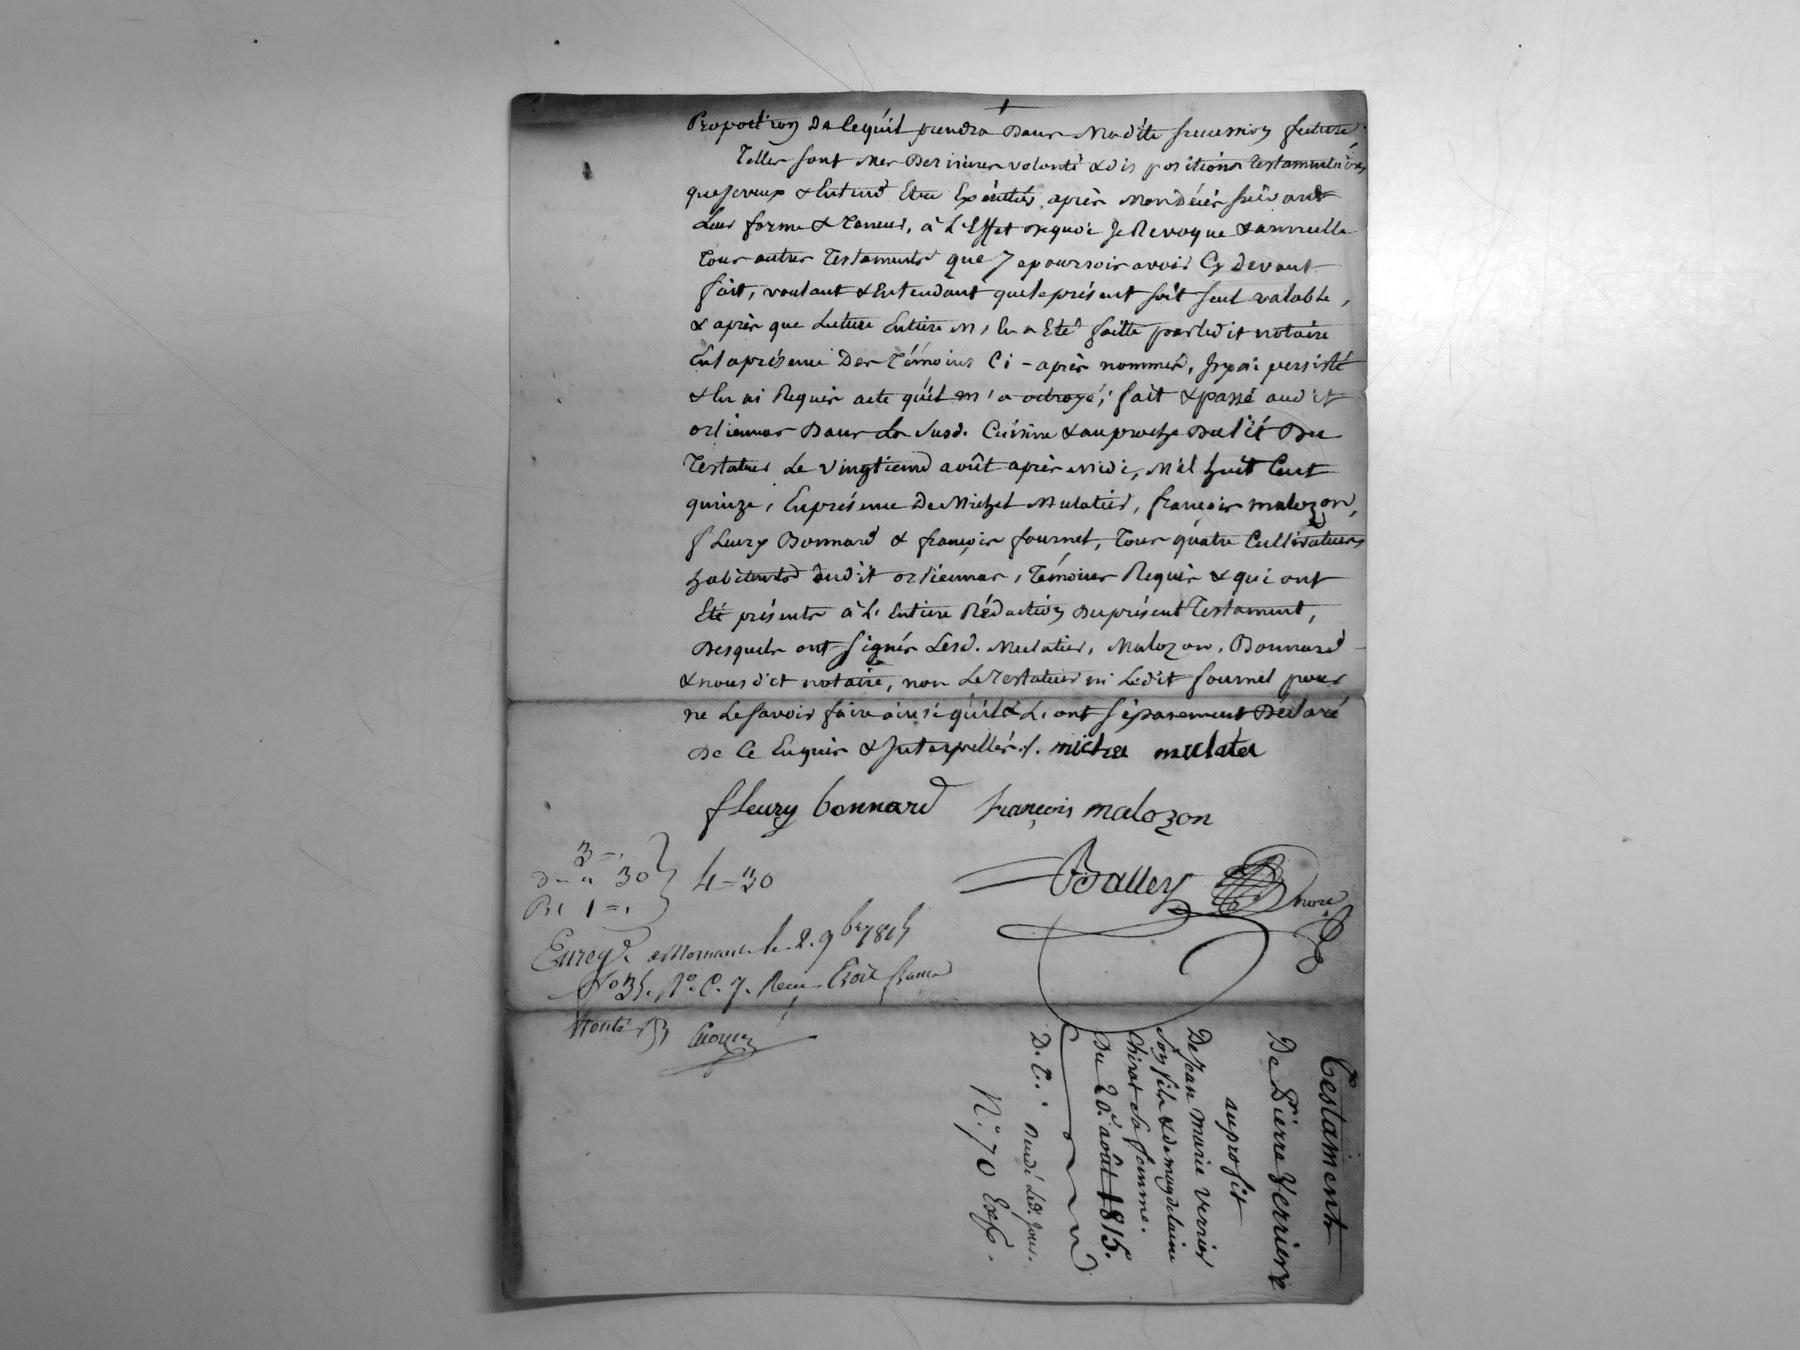 Proportion de ce qu'il prendra dans madite succession future
Telles sont mes dernieres volonté & dispositions testamentaires
que je veux & Entend Etre Exécutées après mon décès suivant
leur forme & teneur, à l'Effet de quoi je Revoque & annulle
tous autres Testaments que je pourrois avoir Cy devant
fait, voulant & Entendant que le présent soit seul valable,
& après que lecture Entiere m'En a Eté faitte par ledit notaire
En la présence des Témoins Ci-après nommés, j'y ai persisté
& En ai Requis acte qu'il m'a octroyé; fait & passé audit
orlienas dans la susd. Cuisine & au proche du lit du
Testateur le vingtieme août après midi, mil huit Cent
quinze, En présence de Michel Mulatier, françois malozon,
fleury Bonnard & françois fournel, tous quatre Cultivateurs
habitants dudit orlienas, Témoins Requis & qui ont
Eté présents à l'Entiere Rédaction du présent Testament,
desquels ont signés lesd. Mulatier, Malozon, Bonnard
& nous dit notaire, non le Testateur ni ledit fournel pour
ne le savoir faire ainsi qu'ils l'ont séparement Déclaré
de Ce Enquis & Interpellés ./. michel mulatier
fleury bonnard françois malozon
Balley nore
3 =
30 4 = 30
1 =
Enreg. à Mornant le 2. 9bre 1815
fo 35. Ro. C. 7. Recu trois francs
Testament
De Pierre Verriere
au profit
De Jean Marie Verrier
son fils & de magdelaine
Chirat sa femme.
Du 20. août 1815.
D. C. Dudi. led. jour.
N. 70 Exp.